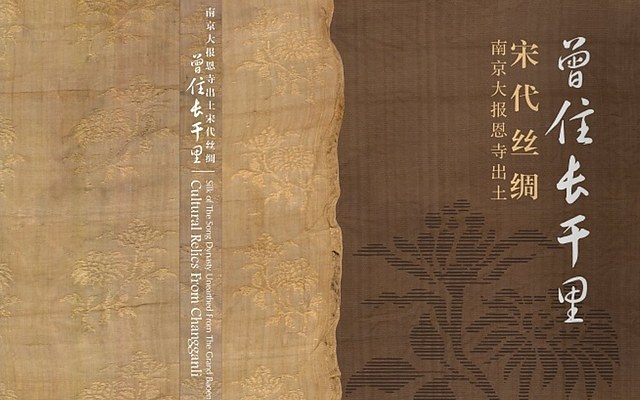 曾住长干里
宋代丝绸
南京大报恩寺出土
南京大报恩寺出土宋代丝绸
曾住长干里
Silk of The Song Dynasty, Unearthed From The Grand Baoen
Cultural Relics From Changganli